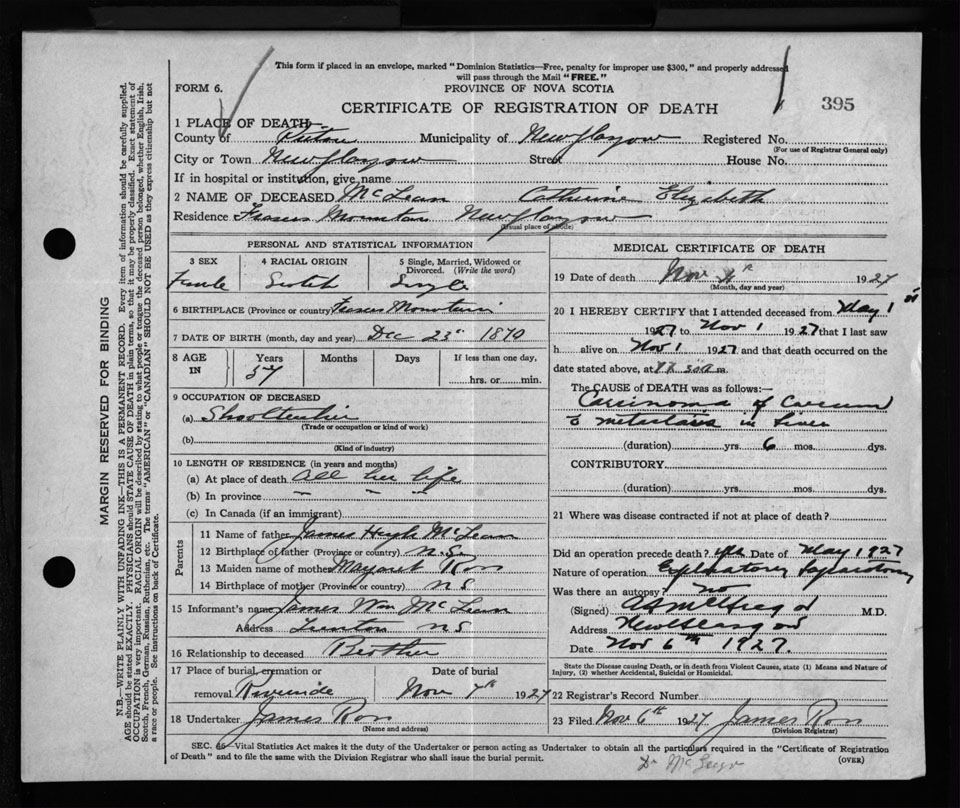 This form if placed in an envelope, marked "Dominion Statistics—Free, penalty for improper use $300," and properly addressed
will pass through the Mail "FREE."
FORM 6.
PROVINCE OF NOVA SCOTIA
CERTIFICATE OF REGISTRATION OF DEATH
395
1 PLACE OF DEATH
County of Pictou Municipality of New Glasgow Registered No.
(For use of Registrar General only)
City or Town New Glasgow Street House No.
If in hospital or institution, give name
2 NAME OF DECEASED McLean Catherine Elizabeth
Residence Frasers Mountain New Glasgow
(Usual place of abode)
PERSONAL AND STATISTICAL INFORMATION
3 SEX 4 RACIAL ORIGIN 5 Single, Married, Widowed or
Divorced. (Write the word)
Female Scotch Single
6 BIRTHPLACE (Province or country) Frasers Mountain
7 DATE OF BIRTH (month, day and year) Dec 23 1870
8 AGE IN Years Months Days If less than one day,
57 hrs. or min.
9 OCCUPATION OF DECEASED
(a)
(Trade or occupation or kind of work)
(b)
(Kind of industry)
10 LENGTH OF RESIDENCE (in years and months)
(a) At place of death all her life
(b) In province " " "
(c) In Canada (if an immigrant)
Parents
11 Name of father James Hugh McLean
12 Birthplace of father (Province or country) N.S.
13 Maiden name of mother Margaret Ross
14 Birthplace of mother (Province or country) N S
15 Informant's name James Wm McLean
Address Trenton N S
16 Relationship to deceased Brother
17 Place of burial, cremation or Date of burial
removal Riverside Nov 7th 1927
18 Undertaker James Ross
(Name and address)
MEDICAL CERTIFICATE OF DEATH
19 Date of death Nov 1927
(Month, day and year)
20 I HEREBY CERTIFY that I attended deceased from May 1st
1927 to Nov 1 1927 that I last saw
h alive on Nov 1 1927 and that death occurred on the
date stated above, at m.
The CAUSE of DEATH was as follows:—
Carcinoma of Caecum
c metastasis in Liver
(duration) yrs. 6 mos. dys.
CONTRIBUTORY
(duration) yrs. mos. dys.
21 Where was disease contracted if not at place of death?
Did an operation precede death? yes Date of May 1927
Nature of operation Exploratory Laparotomy
Was there an autopsy? no
(Signed) M.D.
Address New Glasgow
Dated Nov 6th 1927.
State the Disease causing Death, or in death from Violent Causes, state (1) Means and Nature of
Injury, (2) whether Accidental, Suicidal or Homicidal.
22 Registrar's Record Number
23 Filed Nov 6th 1927 James Ross
(Division Registrar)
SEC. 46—Vital Statistics Act makes it the duty of the Undertaker or person acting as Undertaker to obtain all the particulars required in the "Certificate of Registration
of Death" and to file the same with the Division Registrar who shall issue the burial permit.
(OVER)
MARGIN RESERVED FOR BINDING
N.B.—WRITE PLAINLY WITH UNFADING INK—THIS IS A PERMANENT RECORD. Every item of information should be carefully supplied.
AGE should be stated EXACTLY. PHYSICIANS should STATE CAUSE OF DEATH in plain terms, so that it may be properly classified. Exact statement of
OCCUPATION is very important. RACIAL ORIGIN will be described by stating to what people or tongue the deceased person belonged, whether English, Irish,
Scotch, French, German, Russian, Ruthenian, etc. The terms "AMERICAN" or "CANADIAN" SHOULD NOT BE USED as they express citizenship but not
a race or people. See instructions on back of Certificate.